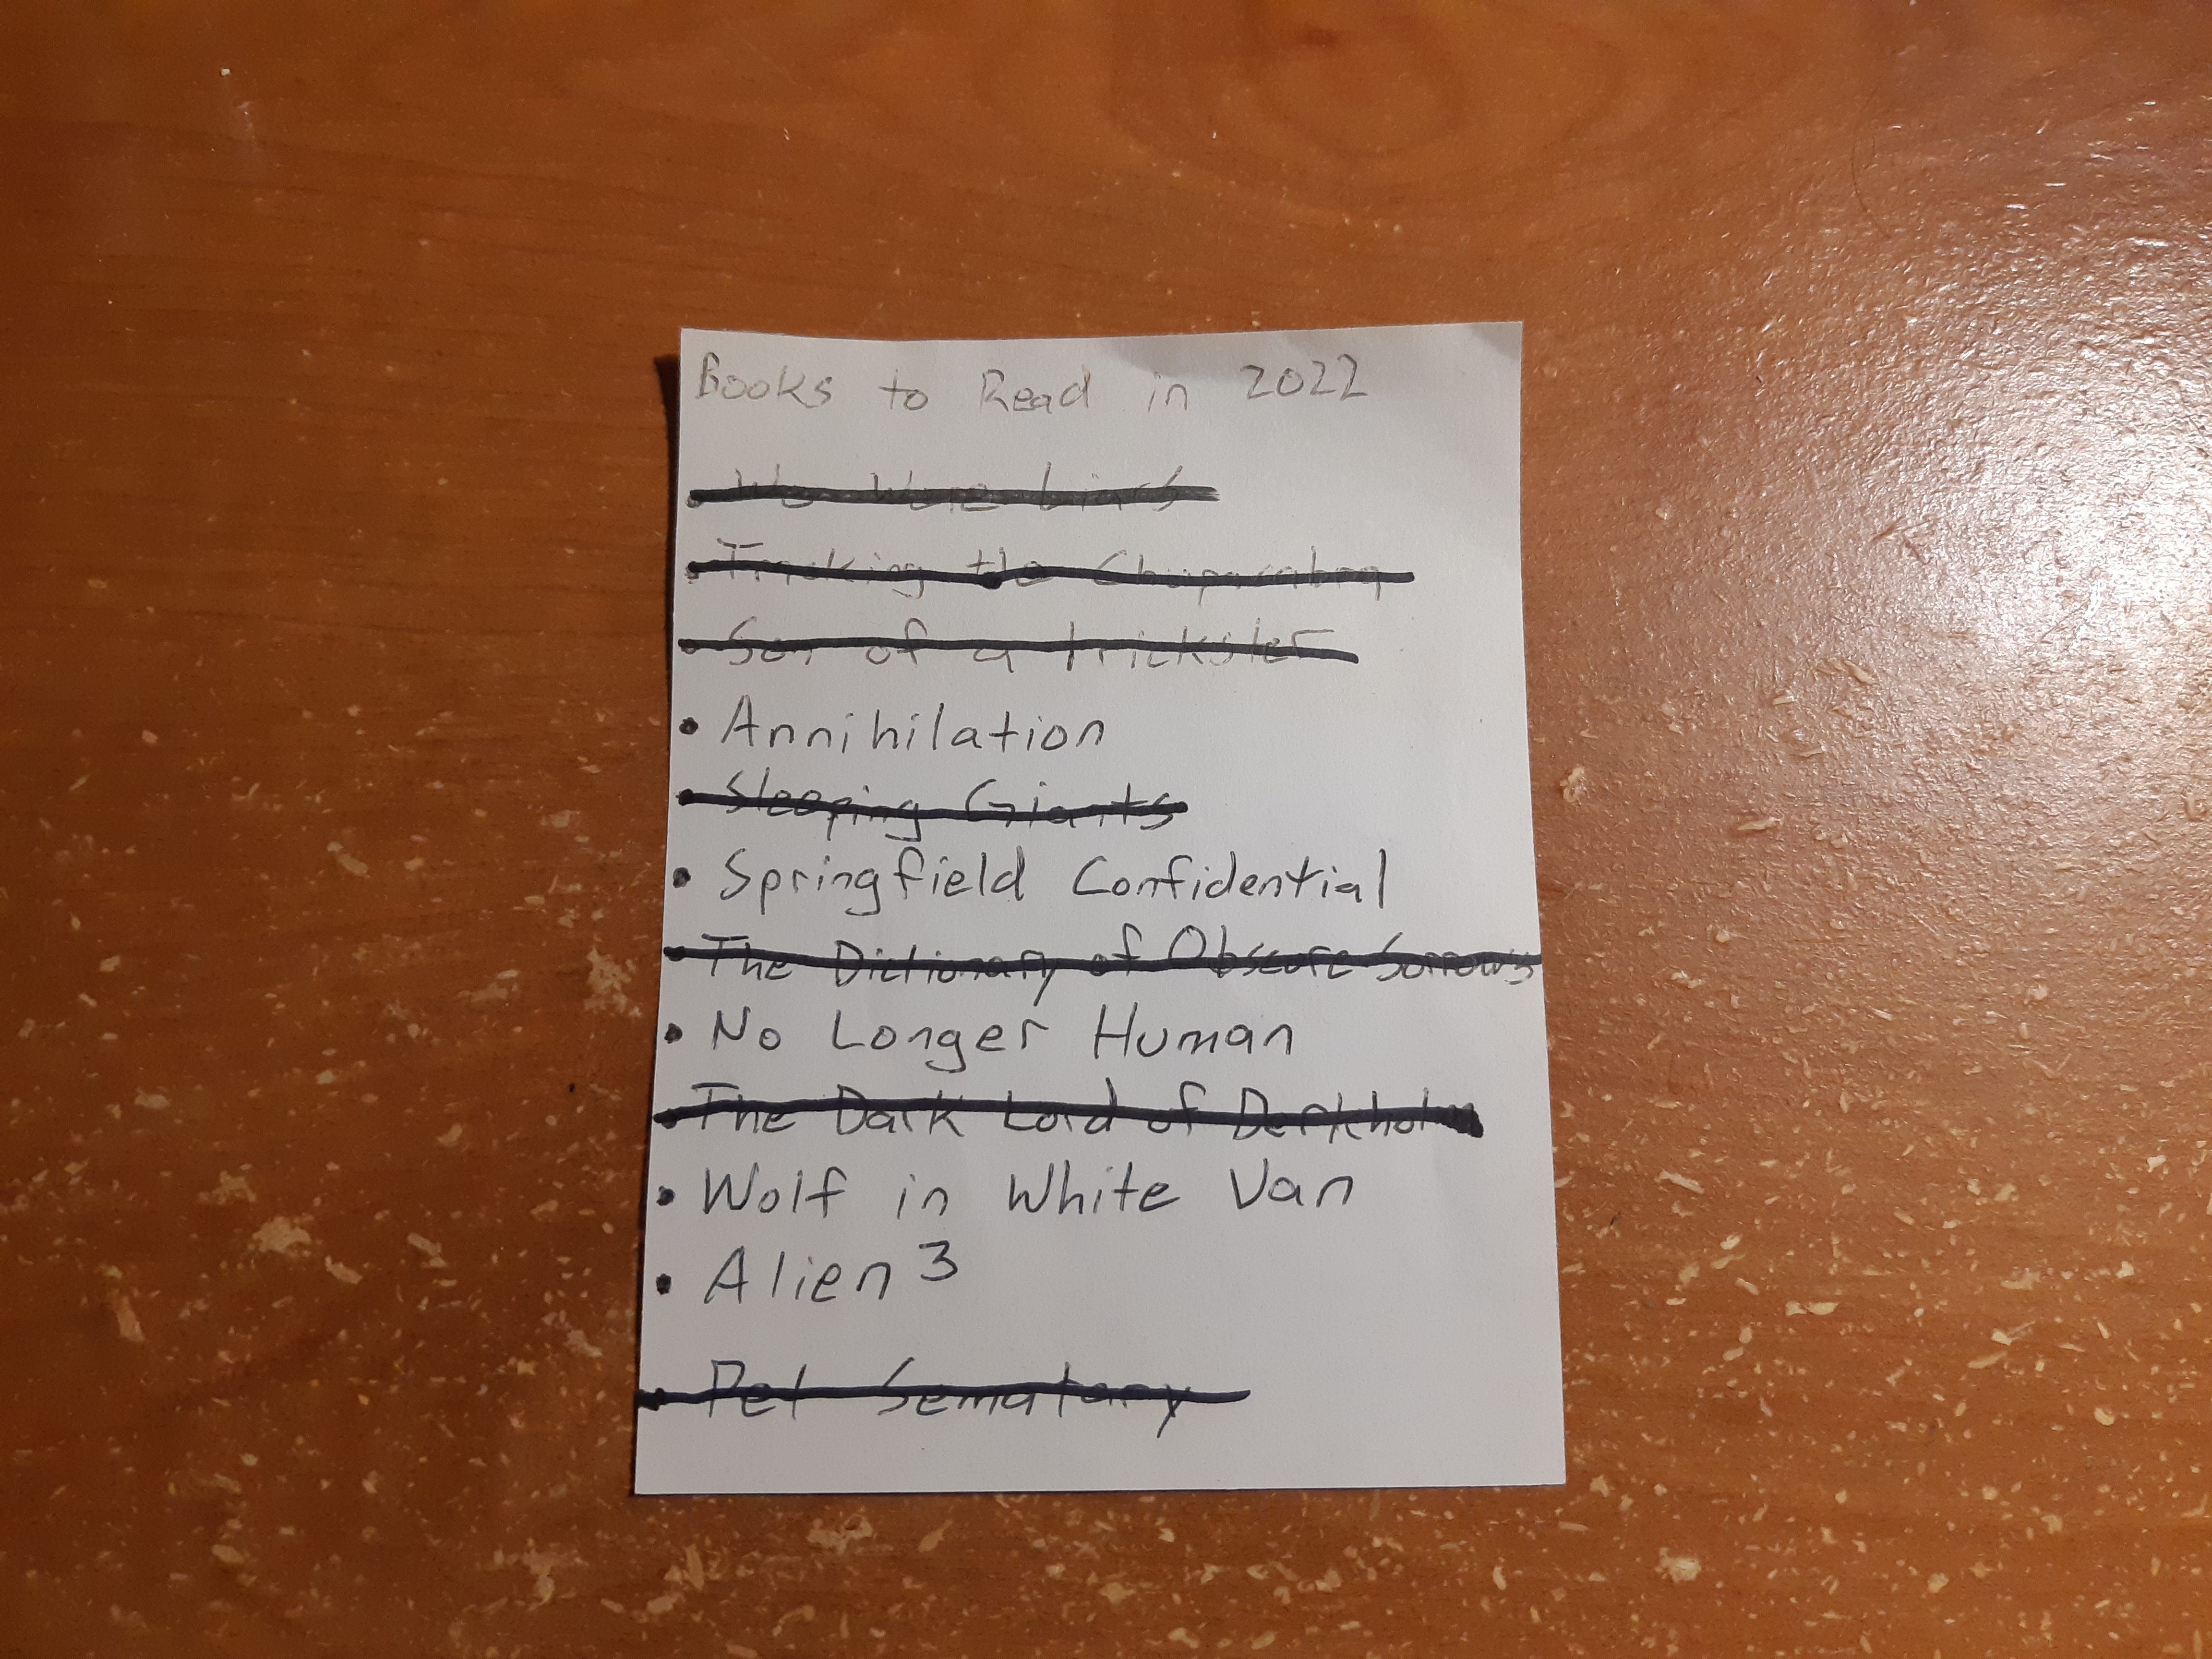 Books to Read in 2022
• We Were Liars
• Tracking the Chupacabra
• Son of a Trickster
• Annihilation
• Sleeping Giants
• Springfield Confidential
• The Dictionary of Obscure Sorrows
• No Longer Human
• The Dark Lord of Derkholm
• Wolf in White Van
• Alien 3
• Pet Sematary